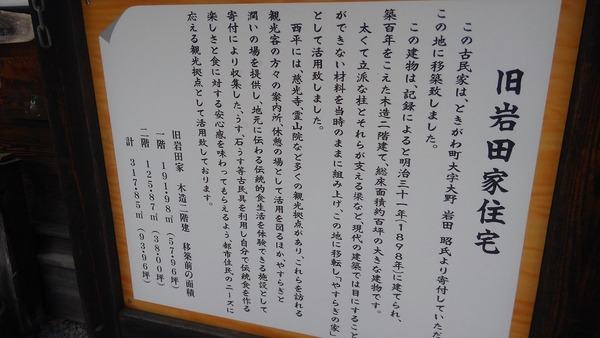 旧岩田家住宅
この古民家は、ときがわ町大字大野 岩田 昭氏より寄付していただ
この地に移築致しました。
この建物は、記録によると明治三十一年(1898年)に建てられ、
築百年をこえた木造二階建て、総床面積約百坪の大きな建物です。
太くて立派な柱とそれらが支える梁など、現代の建築では目にすること
ができない材料を当時のままに組み上げ、この地に移転し「やすらぎの家」
として活用致しました。
西平には、慈光寺、霊山院など多くの観光拠点があり、これらを訪れる
観光客の方々の案内所、休憩の場として活用を図るほか、やすらぎと
潤いの場を提供し、地元に伝わる伝統的食生活を体験できる施設として
寄付により収集した、うす、石うす等古民具を利用し自分で伝統食を作る
楽しさと食に対する安心感を味わってもらえるよう都市住民のニーズに
応える観光拠点として活用致しております。
旧岩田家 木造二階建 移築前の面積
一階 191・98㎡ (57・96坪)
二階 125・87㎡ (38・00坪)
計 317・85㎡ (93・96坪)